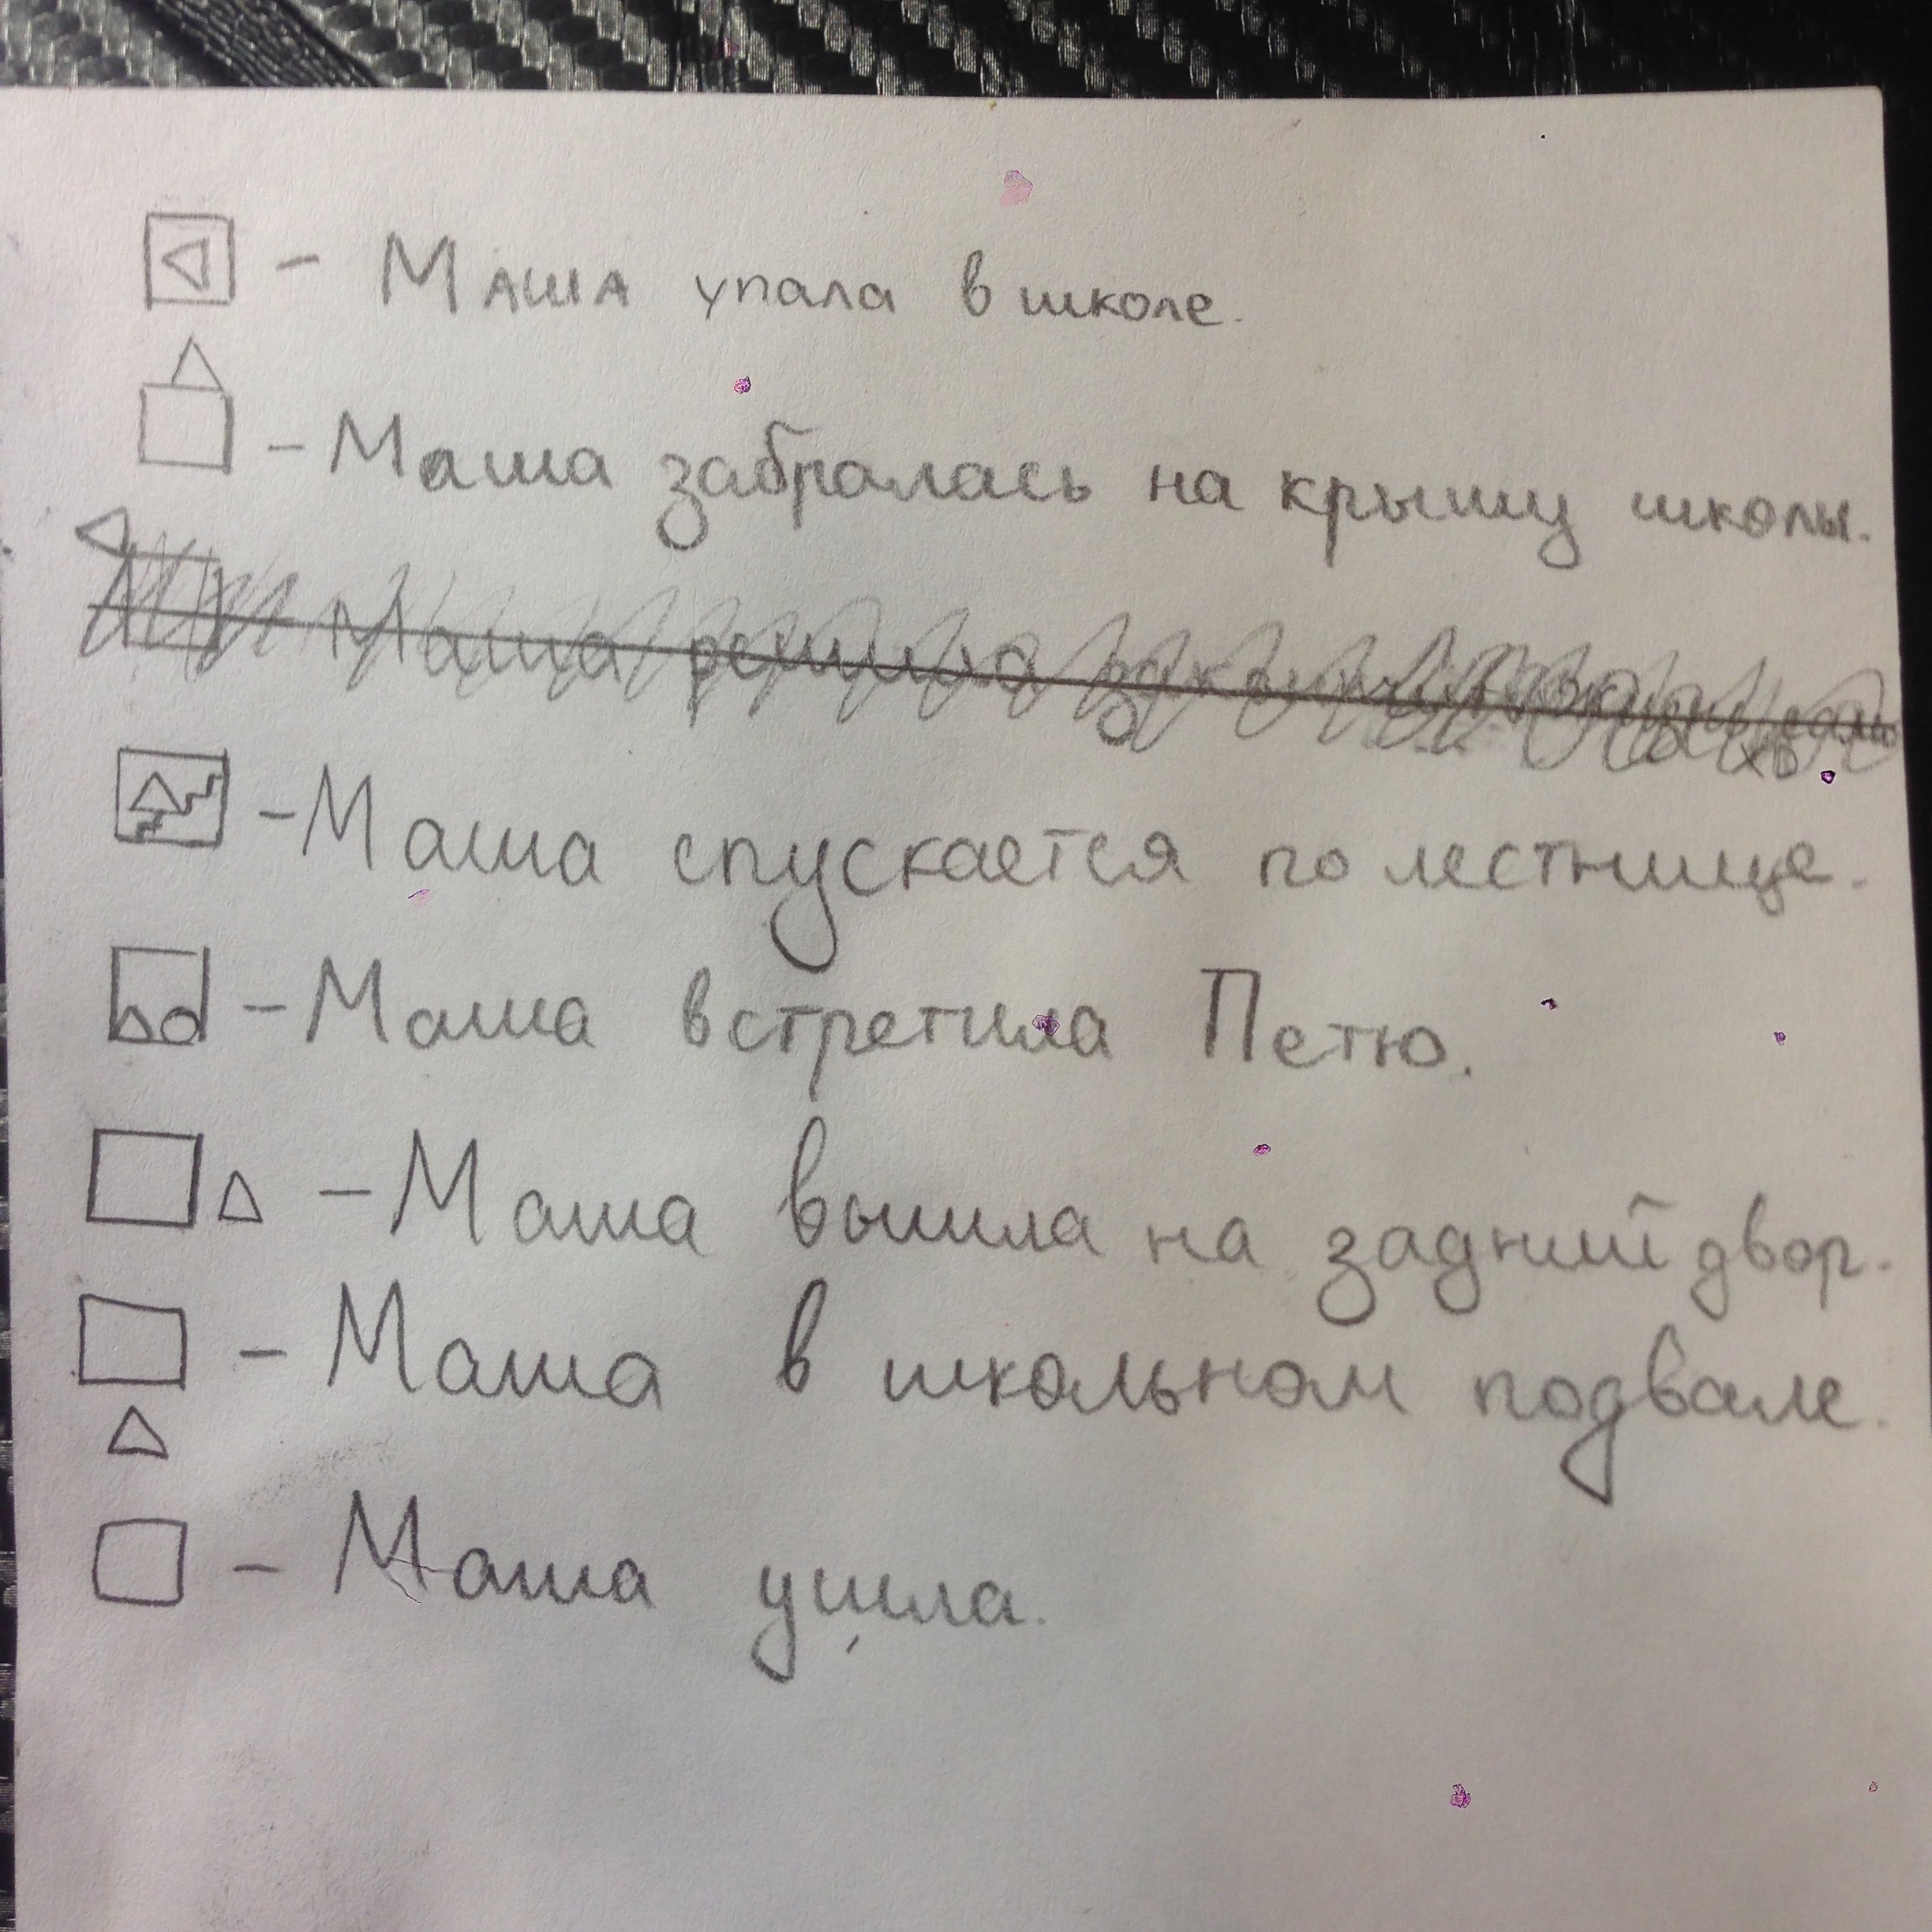 - Маша упала в школе.
- Маша забралась на крышу школы.
Маша решила
- Маша спускается по лестнице.
- Маша встретила Петю.
- Маша вышла на задний двор.
- Маша в школьном подвале.
- Маша ушла.